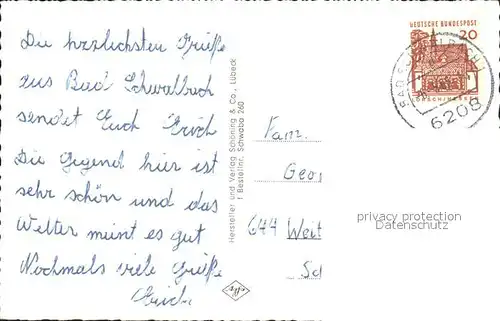 Die herzlichsten Grüße
aus Bad Schwalbach
sendet Euch Erich
Die Gegend hier ist
sehr schön und das
Wetter meint es gut
Nochmals viele Grüße
Erich
Hersteller und Verlag Schöning & Co., Lübeck
† Bestellnr. Schwaba 260
DEUTSCHE BUNDESPOST
20
LORSCH/HESSEN
BAD
6208
Fam.
Geor
644 Weit
privacy protection
Datenschutz